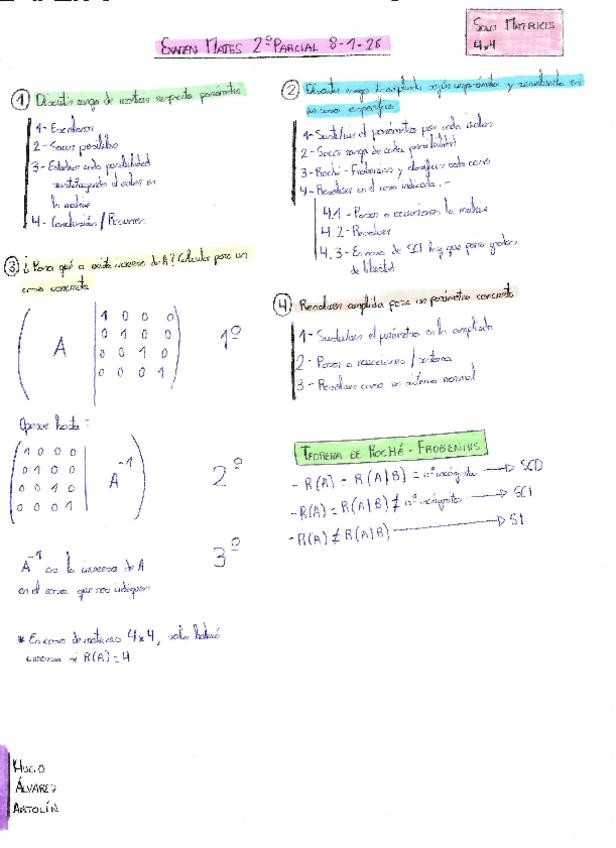 EXAMEN MATES 2º PARCIAL 8-1-26
SOLO MATRICES
4x4
① Discutir rango de matrices respecto parámetro
1- Escalonar
2- Sacar posibles
3- Establecer cada posibilidad
sustituyendo el valor en
la matriz
4- Conclusión / Resumen
② Discutir rango ampliada según parámetro y resolverla en
un caso específico
1- Sustituir el parámetro por cada
2- Sacar rango de cada posibilidad
3- Roché-Frobenius y clasificar cada caso
4- Resolver en el caso indicado.-
4.1- Pasar a ecuaciones la matriz
4.2- Resolver
4.3- En caso de SI hay que poner grados
de libertad
③ ¿Para qué a existe inversa de A? Calcular para un
caso concreto
A 1 0 0 0
0 1 0 0
0 0 1 0
0 0 0 1
1º
Operar hasta:
1 0 0 0
0 1 0 0
0 0 1 0
0 0 0 1
A⁻¹
2º
A⁻¹ es la inversa de A
en el caso que nos indiquen
3º
* En caso de matrices 4x4, solo habrá
inversa si R(A)=4
④ Resolver ampliada para un parámetro concreto
1- Sustituir el parámetro en la ampliada
2- Pasar a ecuaciones / sistema
3- Resolver como un sistema normal
TEOREMA DE ROCHÉ-FROBENIUS
- R(A) = R(A|B) = nº incógnitas → SCD
- R(A) = R(A|B) ≠ nº incógnitas → SCI
- R(A) ≠ R(A|B) → SI
HUGO
ÁLVAREZ
ANTOLÍN